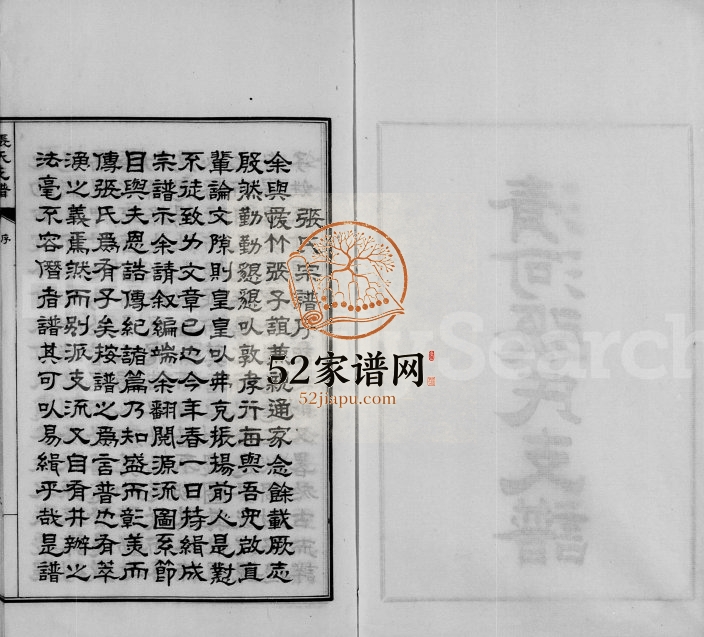 張氏宗譜序
余與竹張子誼通家念餘載厥志
殷然勤勤懇懇以敦孝行每與吾兒啟直
輩論文隙則皇皇以弗克振揚前人是懟
不徒致力文章已也今年春一日持緝成
宗譜示余請敘編端余翻閱源流圖系節
目與夫恩誥傳紀諸篇乃知盛而彰美而
傳張氏為有子矣按譜之為言普也有萃
渙之義焉然而別派支流又自有井辦之
法毫不容僭者譜其可以易緝乎哉是譜
張氏支譜
序
52家谱网
52jiapu.com